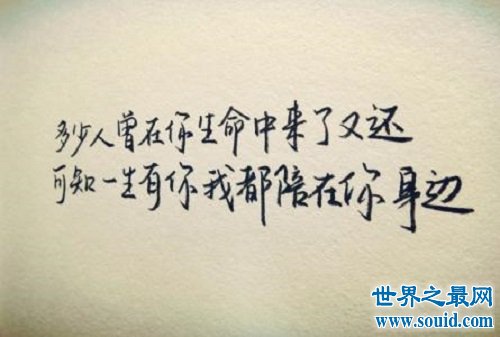 多少人曾在你生命中来了又还
可知一生有你我都陪在你身边
世界之最网
www.souid.com